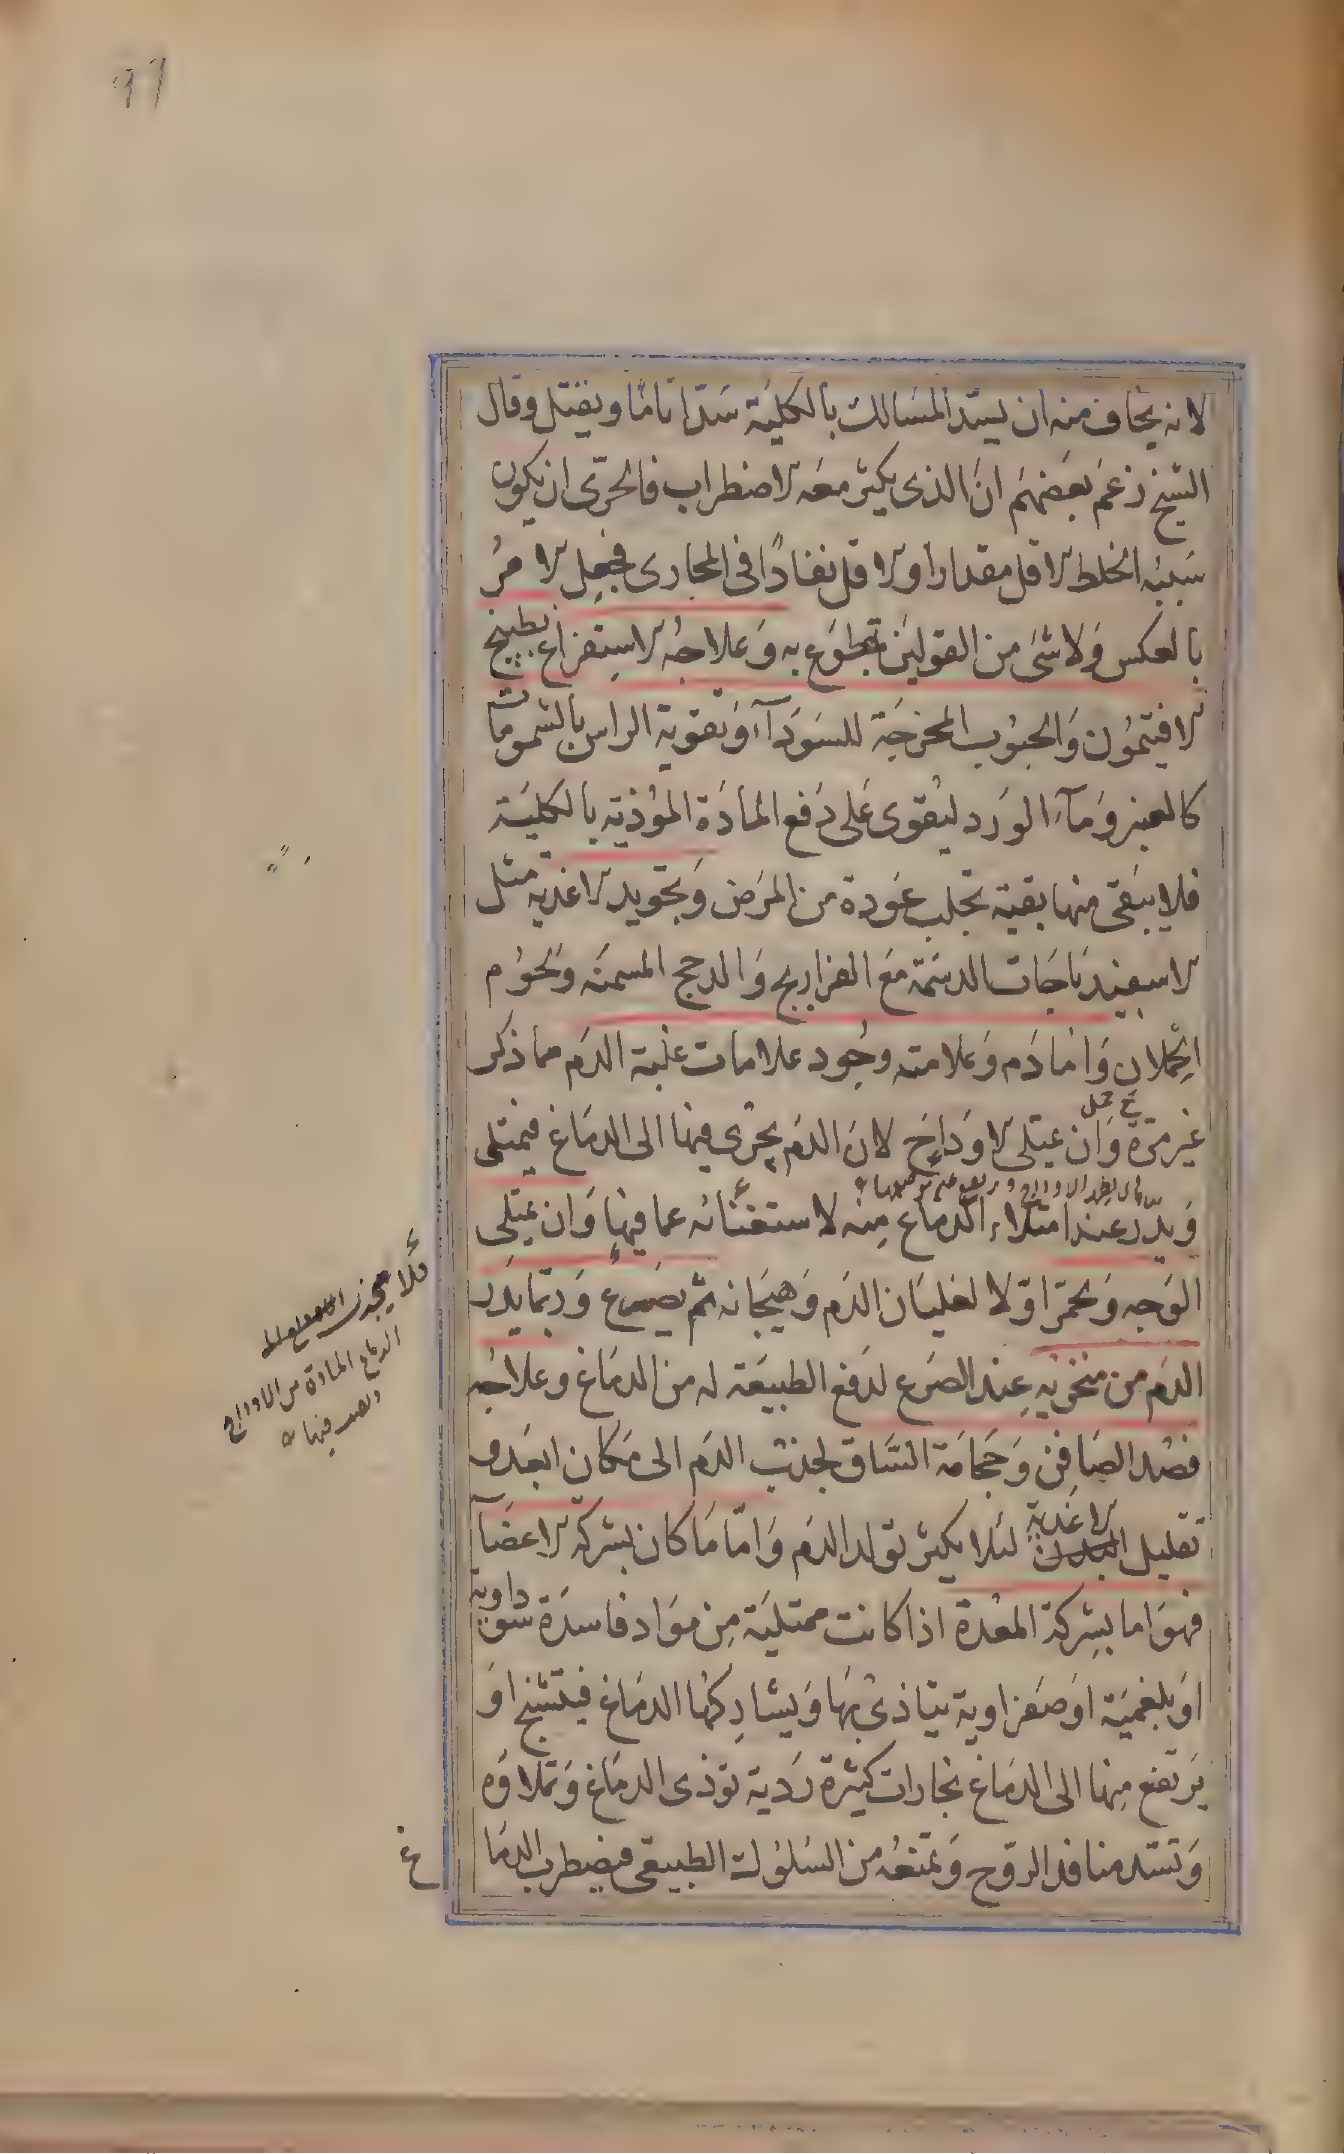 لانه يخاف منه ان يسد المسالك بالكلية سَدّا تامّا ويقتل وقال
الشيخ زعم بعضهم انّ الذى يكثر معه الاضطراب فالحرّى ان يكون
سببه الخلط الاقل مقدارا والاقل نفاذًا فى المجارى فجعل الامرُ
بالعكس وَلا شئ من القولين بمقطوع به وَعلاجهُ الاستفراغ بطبيخ
الافتيمُون وَالحبوب المخرجَة للسَودآء وَتقوية الراس بالشمومات
كالعنبر وَمآء الورد ليقوى عَلى دَفع المادَة المؤذية بالكلية
فلا يبقى منها بقية تجلب عَودة من المرَض وَتجويد الاغذية مثل
الاسفيدَباجَات الدسَمة مَع الفراريج وَالدجج المسمنَه وَلحوُم
الحُملان وَاما دَم وَعلامته وجُود علامات غلبة الدَم مما ذكر
غير مرّة وَان يمتلى الاوَداج لانَ الدَم يجرى فيها الى الدمَاغ فيمتلى
وَيدّر عند امتلاء الدّماغ مِنه لاستغنائه عما فيها وَان يمتلى
الوَجه وَيحمّر اوّلا لغليَان الدَم وَهيجَانه ثم يصَرع وَربما يدَر
الدَم من منخريهِ عِند الصَرع لدَفع الطبيعَة له من الدمَاغ وعلاجُه
فصْد الصَافِن وَحجَامَة السَاق لجذبْ الدَم الى مَكان ابعَد و
تقليل الاغذية لئلا يكثر تولد الدَم وَامّا مَا كان بشركة الاعضَآ
فهوَ اما بشِركة المعْدة اذا كانت ممتليَة مِن موَاد فاسدَة سوداوية
اوَ بلغميَة اوَ صَفراوية يتاذىْ بهَا وَيشارِكهُا الدمَاغ فيتشنج اوَ
يَرتفع مِنها الى الدمَاغ بخارات كثيرة رَدية توذى الدمَاغ وَتملاوَه
وَتسّد منافذ الروّح وَتمنعُه من السُلوُك الطبيعى فيضطرب الدمَا
غ
فلا
الدماغ المادة من الاوداج
فيها